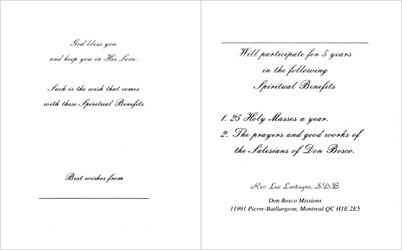 God bless you
and keep you in His Love.
Such is the wish that comes
with these Spiritual Benefits
Best wishes from
Will participate for 5 years
in the following
Spiritual Benefits
1. 25 Holy Masses a year.
2. The prayers and good works of
the Salesians of Don Bosco.
Rev. Luc Lantagne, S.D.B.
Don Bosco Missions
11991 Pierre-Baillargeon, Montreal QC H1E 2E5